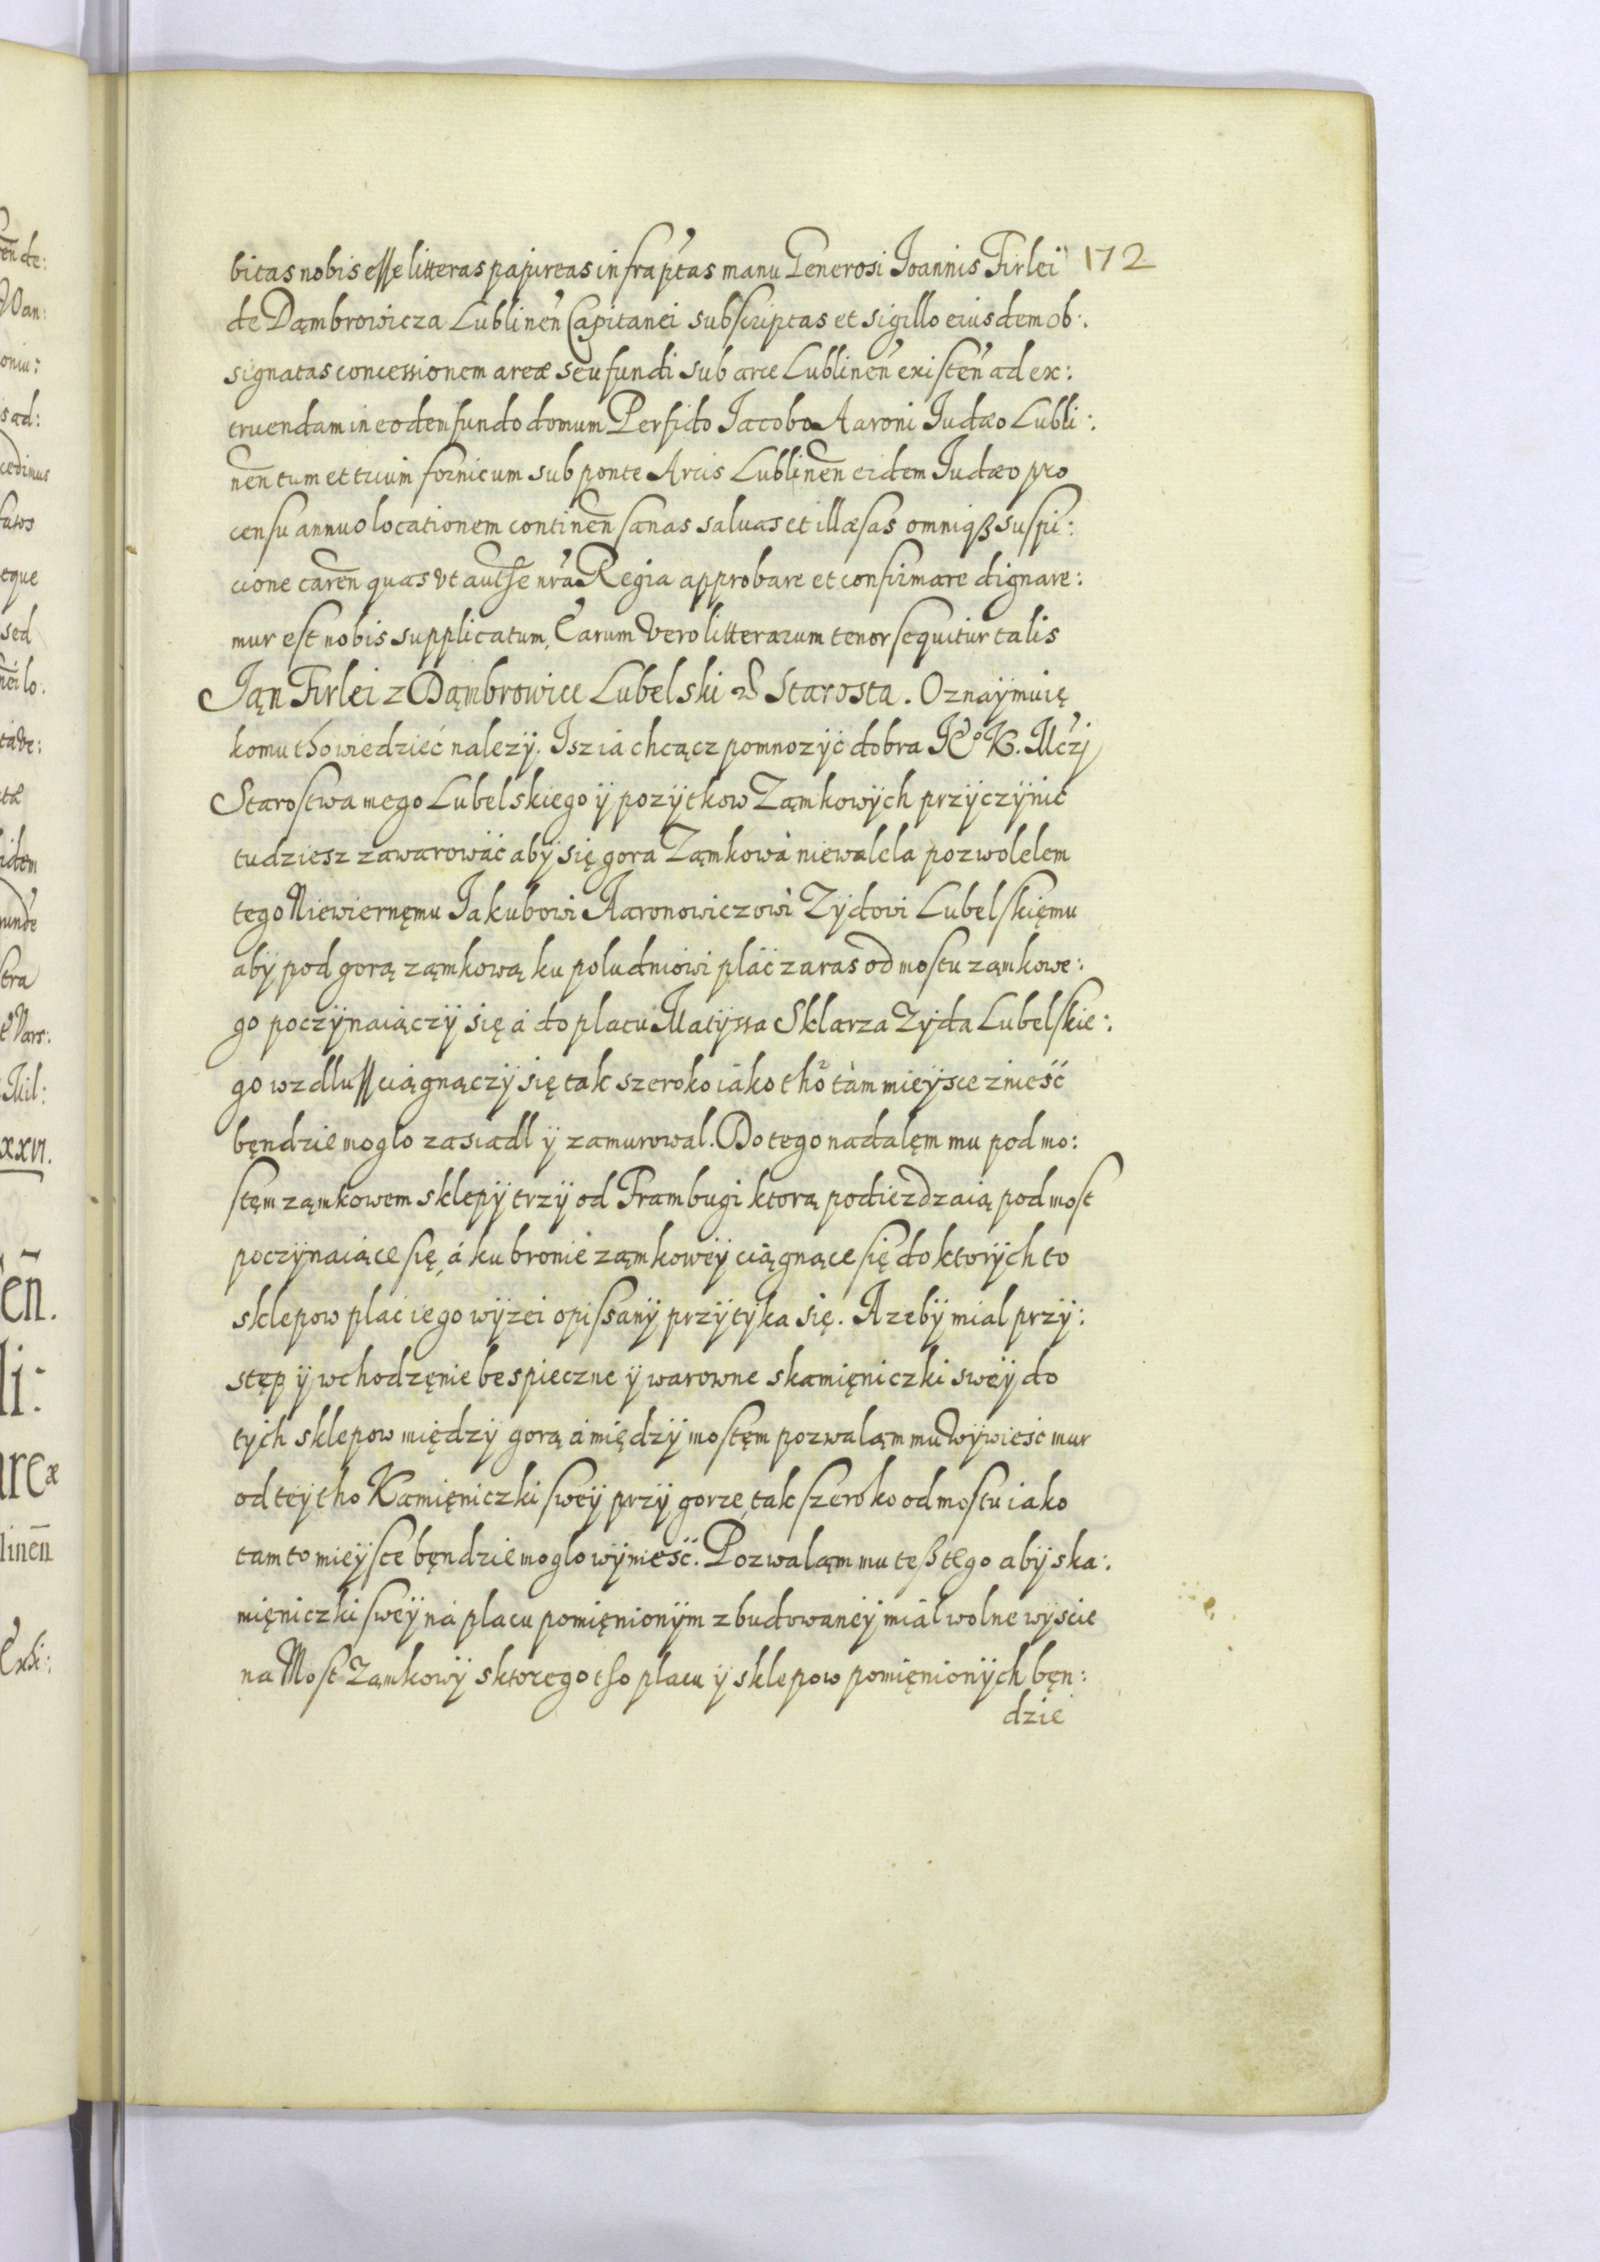 172
bitas nobis esse litteras papireas infrap̃tas manu Generosi Ioannis Firlei
de Dąmbrowicza Lublineñ Capitanei subscriptas et sigillo eiusdem ob:
signatas concessionem areæ seu fundi sub arce Lublineñ existeñ ad ex:
truendam in eodem fundo domum Perfido Iacobo Aaroni Iudæo Lubli:
neñ tum et trium fornicum sub ponte Arcis Lublineñ eidem Iudæo pro
censu annuo locationem contineñ sanas saluas et illæsas omniqß suspi:
cione careñ quas vt auth̃e nr̃a Regia approbare et confirmare dignare:
mur est nobis supplicatum, Earum vero litterarum tenor sequitur talis
Ján Firlei z Dąmbrowice Lubelski Starosta. Oznaÿmuię
komu tho wiedzieć nalezÿ. Isz ia chcącz pomnozÿć dobra K. Mczj
Starostwa mego Lubelskiego ÿ pozÿtkow Ząmkowÿch przÿczÿnić
tudziesz zawarowáć abÿ się gora Ząmkowá niewalela pozwolelem
tego Niewiernęmu Iakubowi Aaronowiczowi Zÿdowi Lubelskięmu
abÿ pod gorą ząmkową ku poludniowi plác zaras od mostu ząmkowe:
go poczÿnaiączÿ się á do placu Matÿssa Sklarza Zÿda Lubelskie:
go wzdluss ciągnączÿ się tak szeroko iáko tho tám mieÿsce znieść
będzie moglo zasiadl ÿ zamurowal. Do tego nadalęm mu pod mo:
stęm ząmkowem sklepÿ trzÿ od Frambugi ktorą podieżdzaią pod most
poczÿnaiące się, á ku bronie ząmkoweÿ ciągnące się do ktorÿch to
sklepow plac iego wÿzei opissanÿ przÿtÿka się. A zebÿ mial przÿ:
stęp ÿ wchodzęnie bespieczne ÿ warowne skamięniczki sweÿ do
tÿch sklepow międzÿ gorą á międzÿ mostęm pozwaląm mu wÿwieść mur
od teÿ tho Kamięniczki sweÿ przÿ gorze, tak szeroko od mostu iako
tam to mieÿsce bęndzie moglo wÿnieść. Pozwaląm mu teß tego abÿ ska:
mięniczki sweÿ ná placu pomięnionÿm zbudowaneÿ miál wolne wÿscie
na Most Zamkowÿ sktorego tho placu ÿ sklepow pomięnionÿch bęn:
dzie